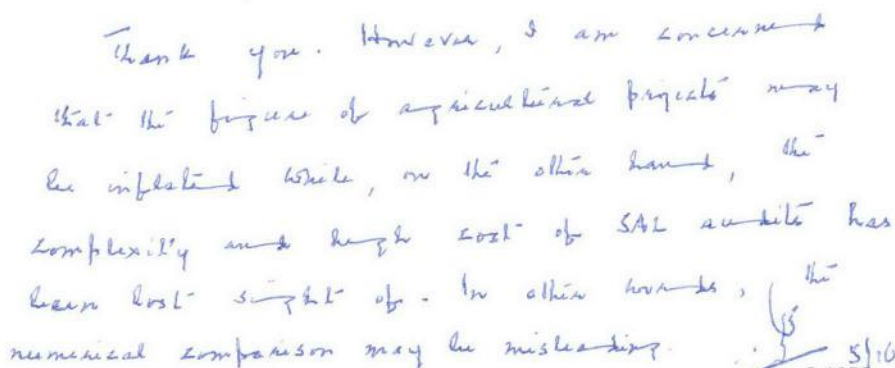 Thank you. However, I am concerned
that the figure of agricultural projects may
be inflated while, on the other hand, the
complexity and high cost of SAL audits has
been lost sight of. In other words, the
numerical comparison may be misleading.
5/10